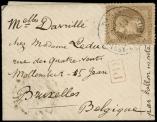 Melle Darville
Chez Madame Leduc
rue des Quatre-Vents
Molenbeek St Jean
Bruxelles
Belgique
par ballon monté
PD